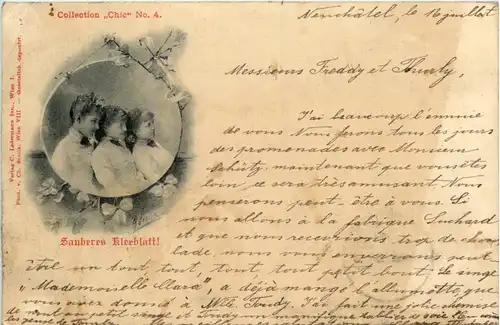 Collection „Chic" No. 4.
Neuchâtel, le 16 juillet
Messieurs Freddy et Thurly,
J'ai beaucoup l'ennuie
de vous Nous ferons tous les jours
des promenades avec Monsieur
Schütz, maintenant que vous êtes
loin ce sera désamusant. Nous
penserons peut être à vous. Si
nous allons à la fabrique Suchard
et que nous recevions trop de cho
lade, nous vous enverrons peut-
être un tout tout, tout tout petit bout. Le singe
"Mademoiselle Clara", a déjà mangé l'allumette que
vous avez donné à Mlle Toudy. J'ai fait une jolie chemise
de nuit au petit singe et Toudy un magnifique tablier de soie
Sauberes Kleeblatt!
Verlag C. Ledermann jun., Wien I.
Phot. v. Ch. Scolik, Wien VIII — Gesetzlich deponirt.